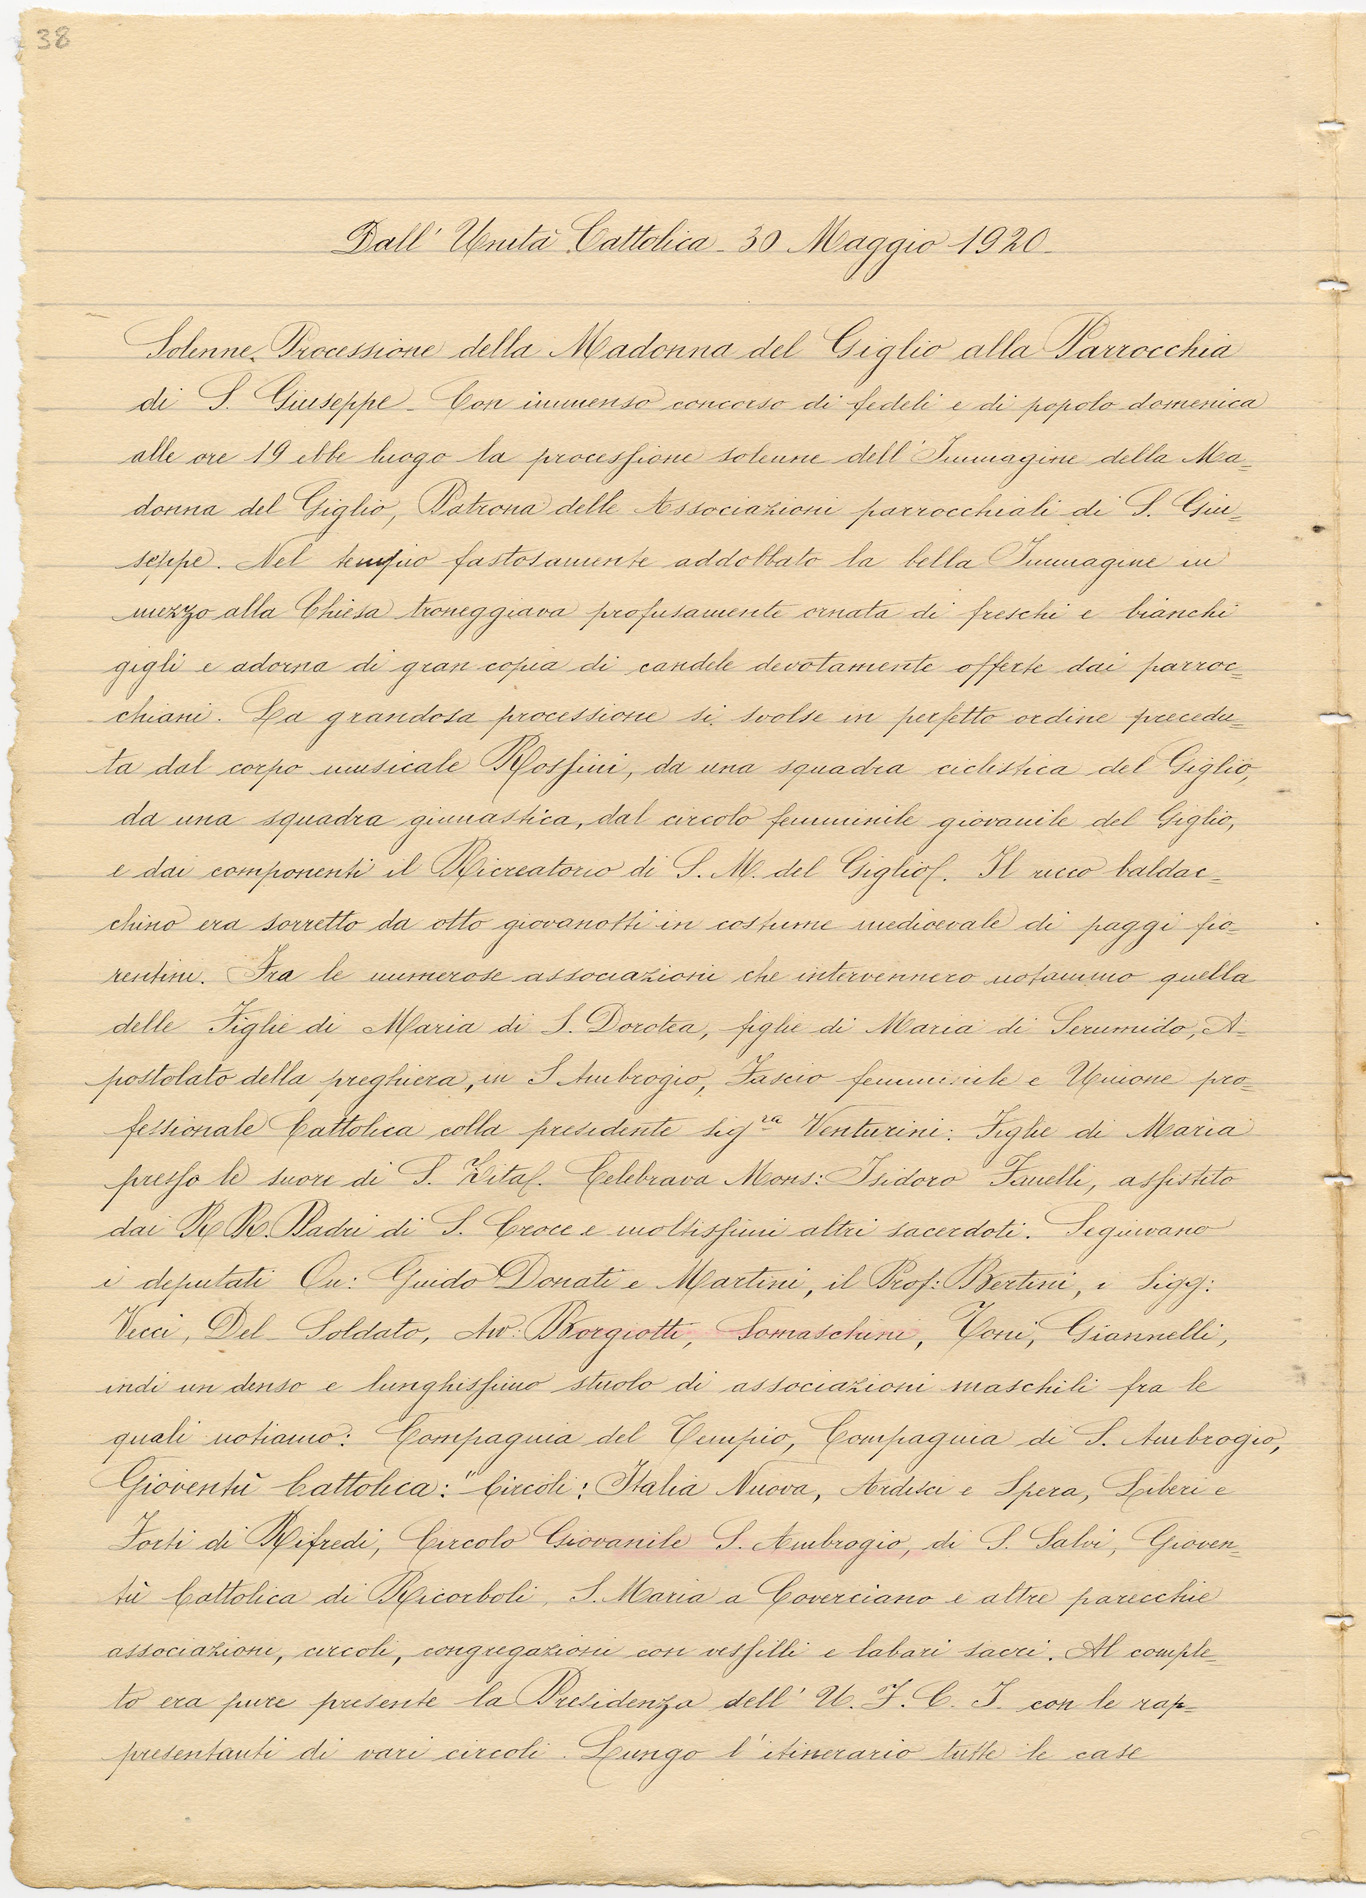 38
Dall' Unità Cattolica - 30 Maggio 1920 -
Solenne Processione della Madonna del Giglio alla Parrocchia
di S. Giuseppe - Con immenso concorso di fedeli e di popolo domenica
alle ore 19 ebbe luogo la processione solenne dell' Immagine della Ma=
donna del Giglio, Patrona delle Associazioni parrocchiali di S. Giu=
seppe. Nel tempio fastosamente addobbato la bella Immagine in
mezzo alla Chiesa troneggiava profusamente ornata di freschi e bianchi
gigli e adorna di gran copia di candele devotamente offerte dai parroc=
chiani. La grandosa processione si svolse in perfetto ordine precedu=
ta dal corpo musicale Rossini, da una squadra ciclistica del Giglio,
da una squadra ginnastica, dal circolo femminile giovanile del Giglio,
e dai componenti il Ricreatorio di S. M. del Giglio(. Il ricco baldac=
chino era sorretto da otto giovanotti in costume medioevale di paggi fio=
rentini. Fra le numerose associazioni che intervennero notammo quella
delle Figlie di Maria di S. Dorotea, figlie di Maria di Serumido, A-
postolato della preghiera, in S. Ambrogio, Fascio femminile e Unione pro=
fessionale Cattolica colla presidente sig.ra Venturini: Figlie di Maria
presso le suore di S. Zita(. Celebrava Mons: Isidoro Fanelli, assistito
dai R R. Padri di S. Croce e moltissimi altri sacerdoti. Seguivano
i deputati On: Guido Donati e Martini, il Prof: Bertini, i Sigg:
Vecci, Del Soldato, Avv: Borgiotti, Somaschini, Toni, Giannelli,
indi un denso e lunghissimo stuolo di associazioni maschili fra le
quali notiamo: Compagnia del Tempio, Compagnia di S. Ambrogio,
Gioventù Cattolica: "Circoli: Italia Nuova, Ardisci e Spera, Liberi e
Forti di Rifredi, Circolo Giovanile S. Ambrogio, di S. Salvi, Gioven=
tù Cattolica di Ricorboli, S. Maria a Coverciano e altre parecchie
associazioni, circoli, congregazioni con vessilli e labari sacri. Al comple=
to era pure presente la Presidenza dell' U. F. C. I. con le rap=
presentanti di vari circoli. Lungo l' itinerario tutte le case